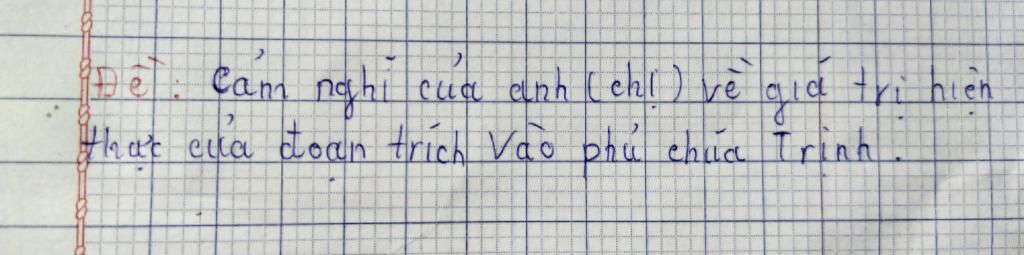 Đề: Cảm nghĩ của anh (chị) về giá trị hiện
thực của đoạn trích Vào phủ chúa Trịnh.